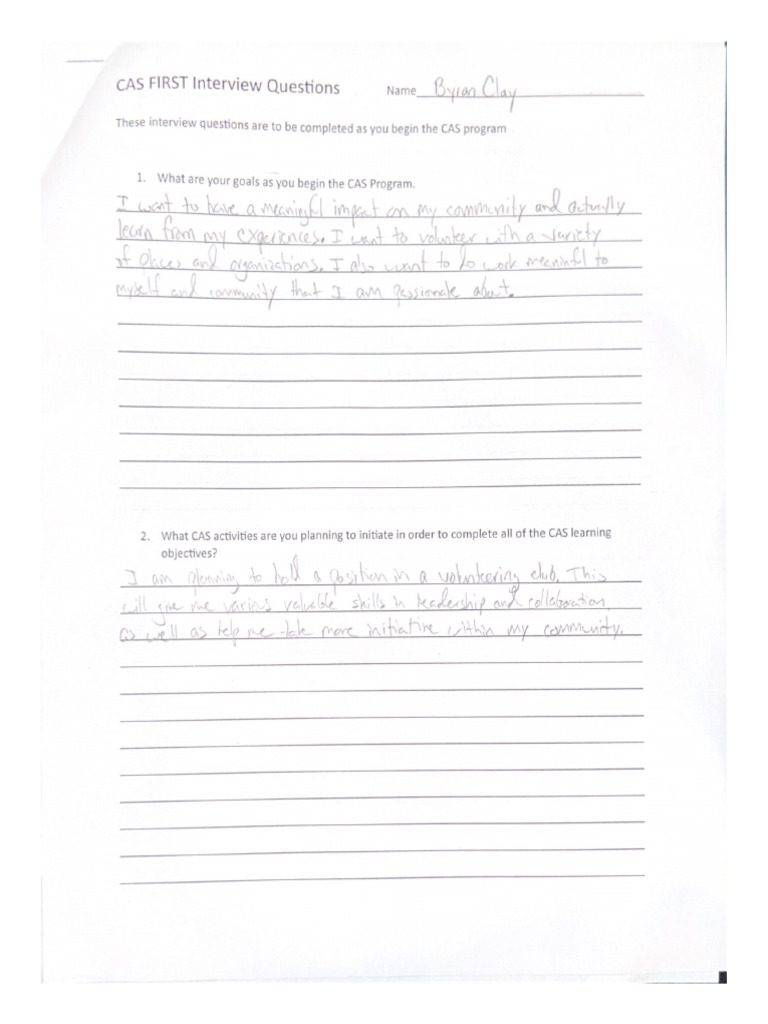 CAS FIRST Interview Questions Name Byron Clay
These interview questions are to be completed as you begin the CAS program
1. What are your goals as you begin the CAS Program.
I want to have a meaningful impact on my community and actually
learn from my experiences. I want to volunteer with a variety
of places and organizations. I also want to do work meaninful to
myself and community that I am passionate about.
2. What CAS activities are you planning to initiate in order to complete all of the CAS learning
objectives?
I am planning to hold a position in a volunteering club. This
will give me various valuable skills in leadership and collaboration,
as well as help me take more initiative within my community.